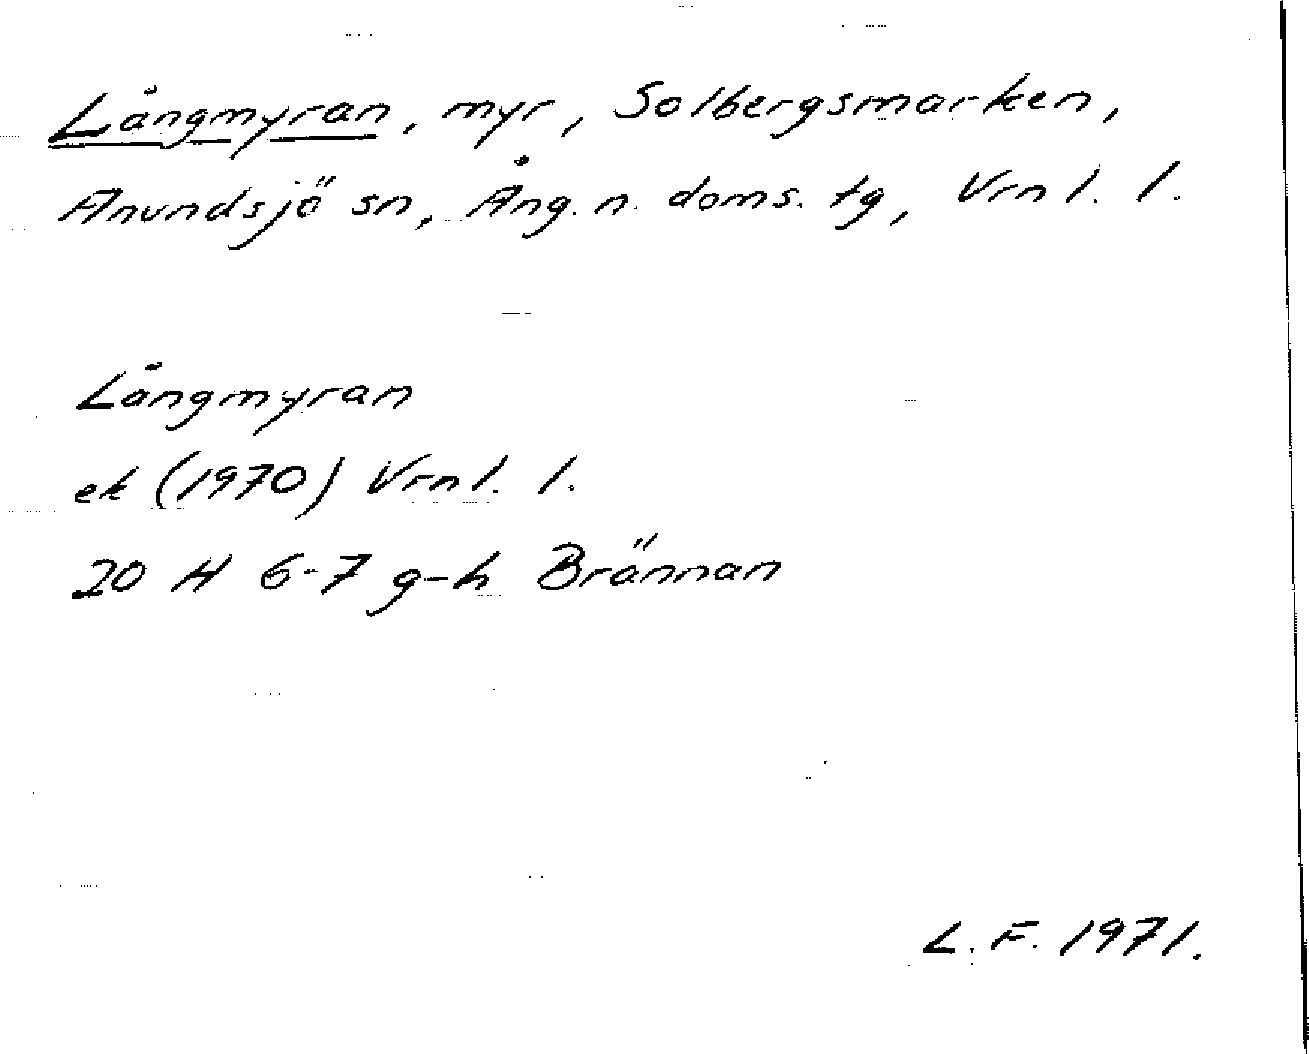 Långmyran, myr, Solbergsmarken,
Anundsjö sn, Ång. n. doms. tg, Vrnl. l.
Långmyran
ek (1970) Vrnl. l.
20 H 6-7 g-h Brännan
L. F. 1971.